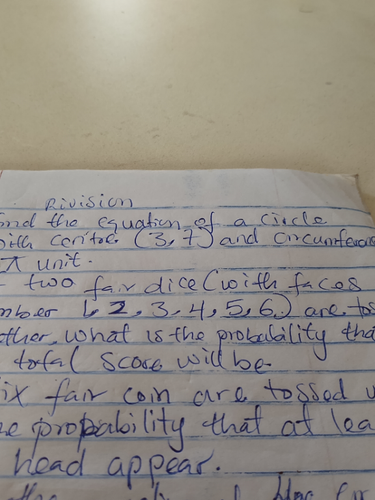 Rivision
ind the equation of a circle
ith centre (3, 7) and circumferen
π unit.
two fair dice (with faces
mber 1, 2, 3, 4, 5, 6) are tos
ther, what is the probability tha
total score will be
ix fair coin are tossed
e probability that at lea
head appear.